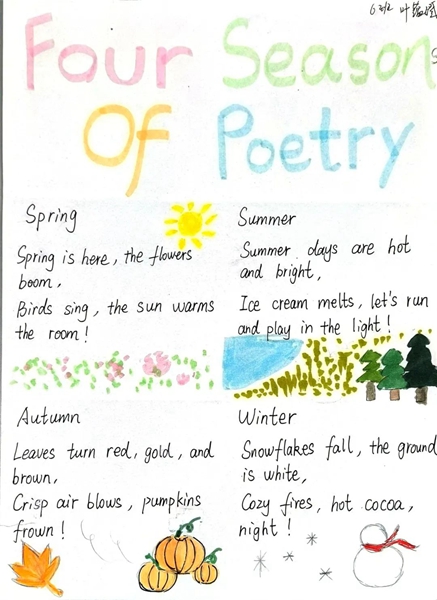 Four Seasons
Of Poetry
Spring
Spring is here, the flowers
boom,
Birds sing, the sun warms
the room!
Summer
Summer days are hot
and bright,
Ice cream melts, let's run
and play in the light!
Autumn
Leaves turn red, gold, and
brown,
Crisp air blows, pumpkins
frown!
Winter
Snowflakes fall, the ground
is white,
Cozy fires, hot cocoa,
night!